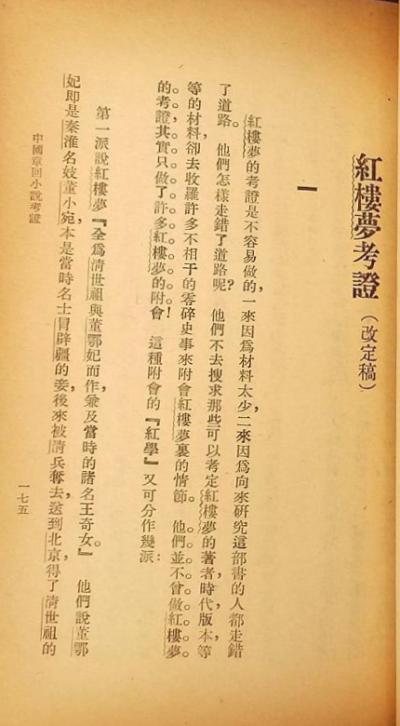 紅樓夢考證(改定稿)
一
紅樓夢的考證是不容易做的,一來因爲材料太少,二來因爲向來研究這部書的人都走錯
了道路。他們怎樣走錯了道路呢?他們不去搜求那些可以考定紅樓夢的著者,時代,版本,等
等的材料,卻去收羅許多不相干的零碎史事來附會紅樓夢裏的情節。他們並不曾做紅樓夢
的考證,其實只做了許多紅樓夢的附會!這種附會的『紅學』又可分作幾派:
第一派說紅樓夢『全爲清世祖與董鄂妃而作,兼及當時的諸名王奇女。』他們說董鄂
妃卽是秦淮名妓董小宛,本是當時名士冒辟疆的妾,後來被清兵奪去,送到北京,得了清世祖的
中國章回小說考證
一七五